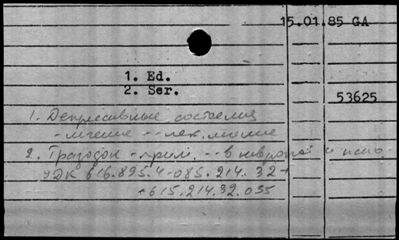 15.01.85 GA
1. Ed.
2. Ser.
53625
1. Депрессивные состояния
- лечение -- лек.
2. Тразодон - прим. -- в
УДК 616.895.4-085.214.32+
+615.214.32.035